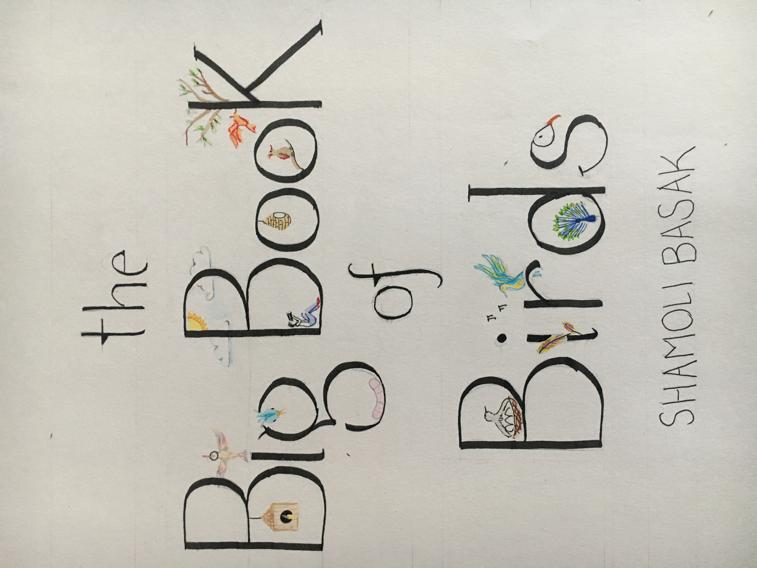 the
Big Book
of
Birds
SHAMOLI BASAK